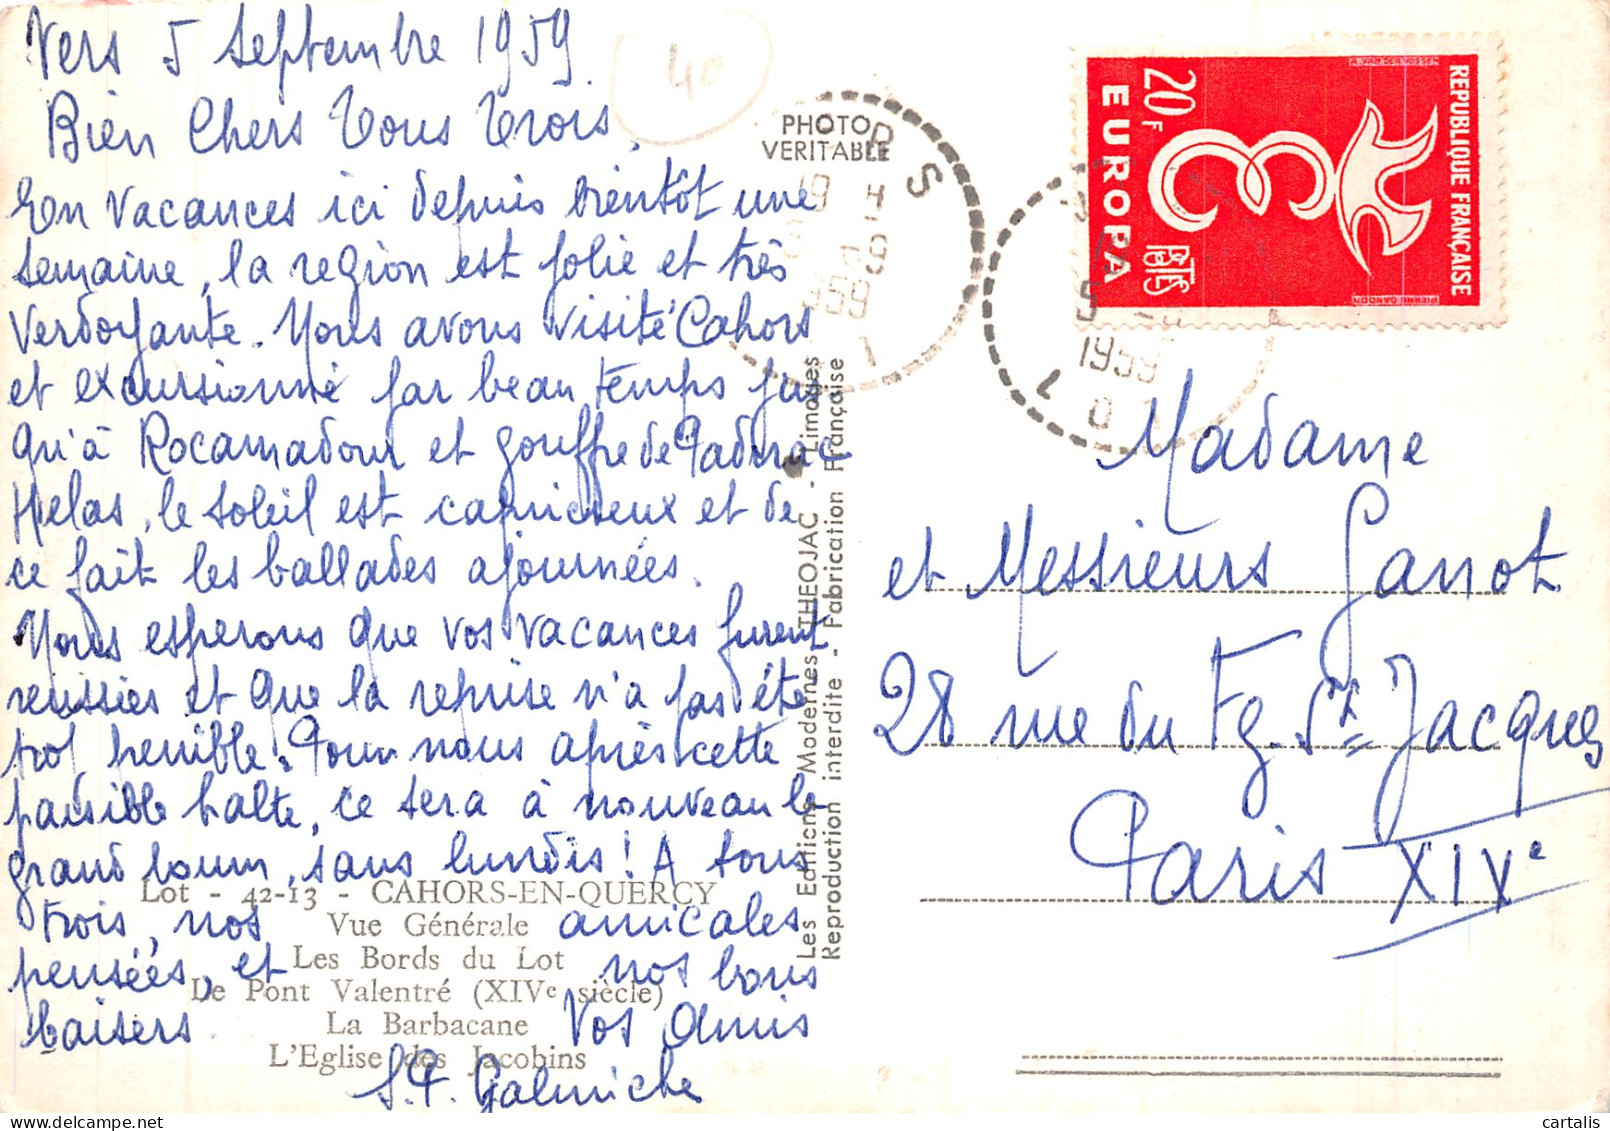 Vers 5 Septembre 1959.
Bien Chers Vous Trois,
En vacances ici depuis bientôt une
semaine, la region est jolie et très
verdoyante. Nous avons visité Cahors
et excursionné par beau temps jus
qu'à Rocamadour et gouffre de Padirac
Helas, le soleil est capricieux et de
ce fait les ballades ajournées.
Nous esperons que vos vacances furent
reussies et que la reprise n'a pas été
trop penible! Pour nous après cette
paisible halte, ce sera à nouveau le
grand boum, sans lundis! A tous
trois, nos amicales
pensées, et nos bons
baisers. Vos amis
S.P. Galmiche
40
Lot - 42-13 - CAHORS-EN-QUERCY
Vue Générale
Les Bords du Lot
De Pont Valentré (XIVe siècle)
La Barbacane
L'Eglise des Jacobins
PHOTO
VERITABLE
Les Editions Modernes THEOJAC - Limoges
Reproduction interdite - Fabrication Française
VERS
19 H
5 - 9
1959
LOT
19 H
5 - 9
1959
LOT
REPUBLIQUE FRANÇAISE
20F
EUROPA
POSTES
A. VAN DER VOSSEN
PIERRE GANDON
Madame
et Messieurs Ganot
28 rue du Fg. St Jacques
Paris XIVe
cartalis